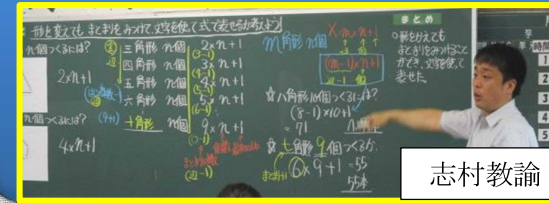 形を変えても、きまりをみつけて、文字を使って式で表せるか考えよう!
n個つくるには?
2×n+1
n個つくるには?
4×n+1
三角形 n個 2×n+1
(3-1)
四角形 n個 3×n+1
(4-1)
五角形 n個 4×n+1
(5-1)
六角形 n個 5×n+1
(6-1)
十角形 n個 9×n+1
(10-1)
(辺-1)
m角形 n個
×m×n+1
(m-1)×n+1
辺-1 個
☆八角形10個つくるには?
(8-1)×10+1
=71
71本
☆七角形9個つくる
6×9+1=55
55本
まとめ
○形をかえても
きまりをみつけること
ができ、文字を使って
表せた。
志村教諭